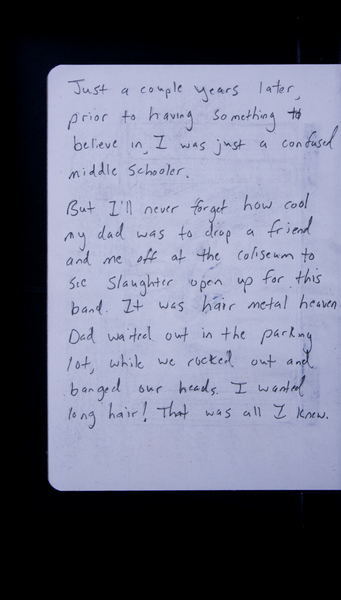 Just a couple years later,
prior to having something to
believe in, I was just a confused
middle schooler.
But I'll never forget how cool
my dad was to drop a friend
and me off at the coliseum to
see Slaughter open up for this
band. It was hair metal heaven.
Dad waited out in the parking
lot, while we rocked out and
banged our heads. I wanted
long hair! That was all I knew.